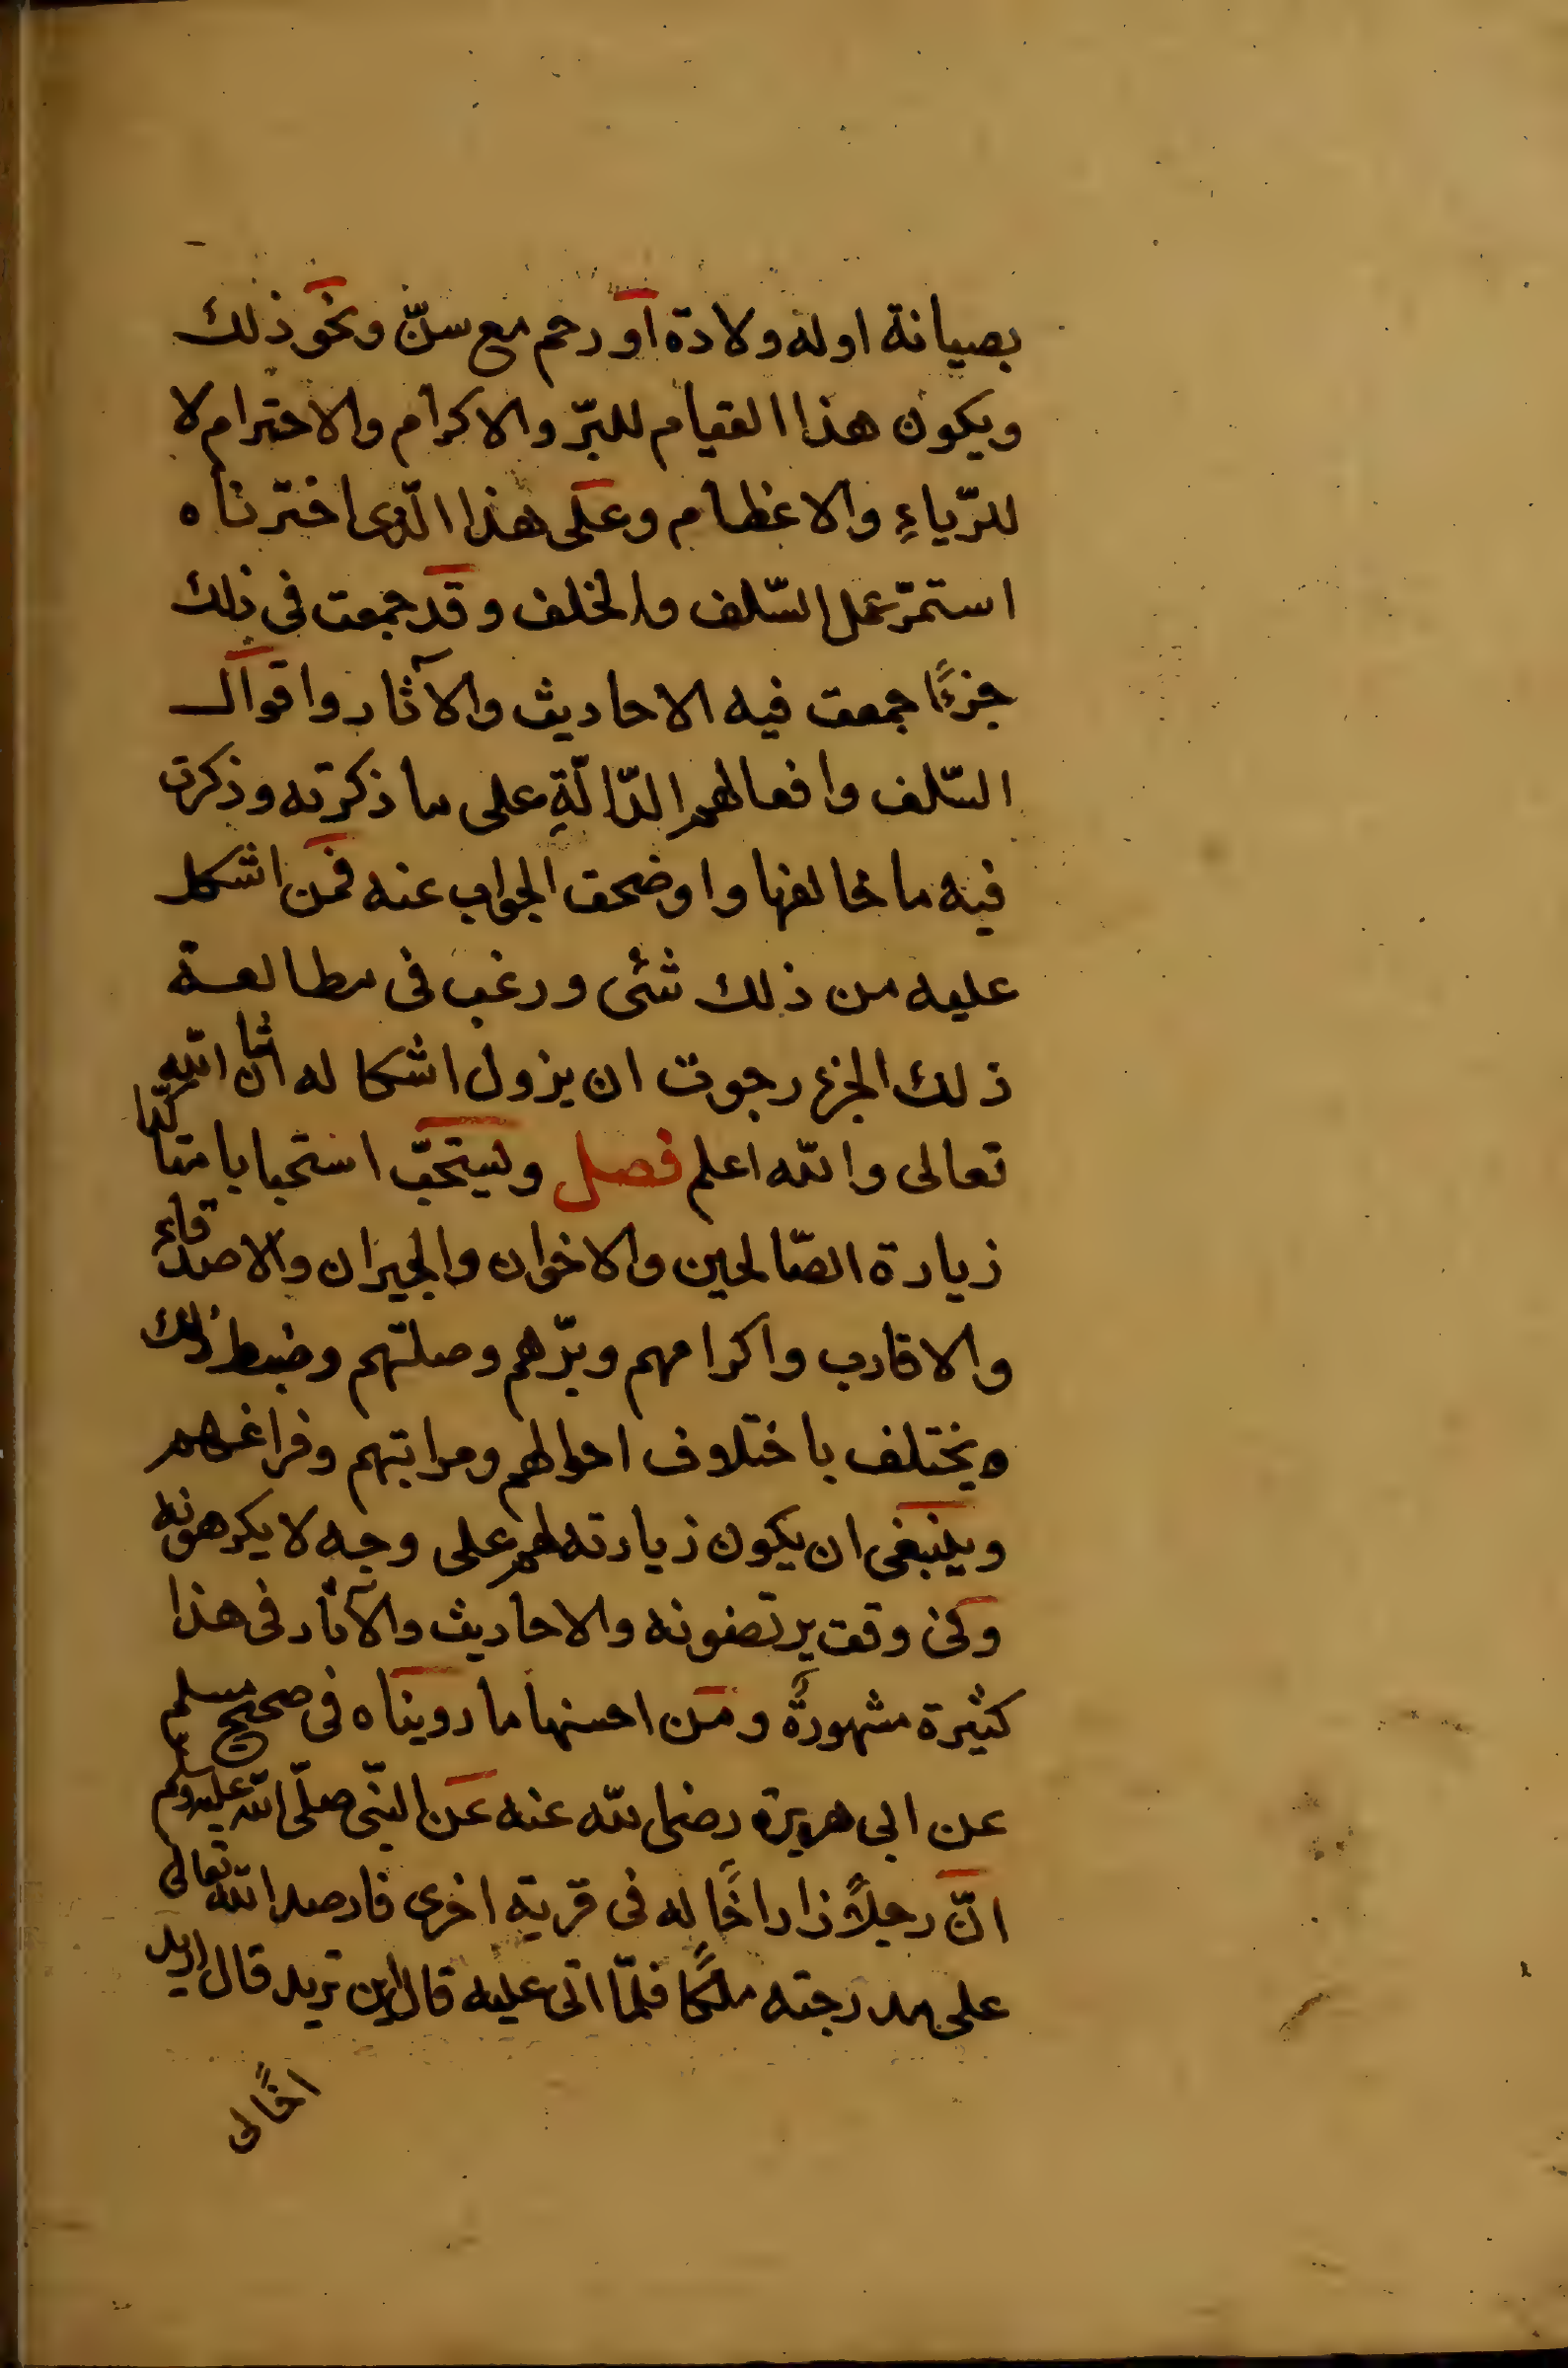 بصيانة او له ولادة او رحم مع سنّ ونحو ذلك
ويكون هذا القيام للبرّ والاكرام والاحترام لا
للرّياءِ والاعظام وعلى هذا الّذى اخترناه
استمرّ عمل السّلف والخلف وقد جمعت فى ذلك
جزءًا جمعت فيه الاحاديث والآثار واقوال
السّلف وافعالهم الدّالّةِ على ما ذكرته وذكرت
فيه ما خالفها واوضحت الجواب عنه فمن اشكل
عليه من ذلك شئى ورغب فى مطالعة
ذلك الجزء رجوت ان يزول اشكاله ان شا الله
تعالى والله اعلم فصل ويستحبّ استحبابا متاكّدا
زيارة الصّالحين والاخوان والجيران والاصدقاء
والاقارب واكرامهم وبرّهم وصلتهم وضبط ذلك
ويختلف باختلاف احوالهم ومراتبهم وفراغهم
وينبغى ان يكون زيارته لهم على وجه لا يكرهونه
وفى وقت يرتضونه والاحاديث والآثار فى هذا
كثيرة مشهورةً ومن احسنها ما رويناه فى صحيح مسلم
عن ابى هريرة رضى الله عنه عن النبّى صلّى الله عليه وسلّم
انّ رجلاً زار اخًا له فى قرية اخرى فارصد الله تعالى
على مدرجته ملكًا فلمّا اتى عليه قال اين تريد قال اريد
اخًا لى